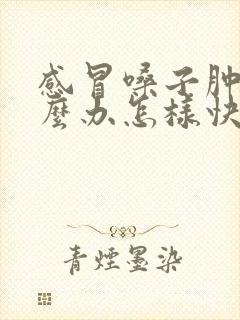 感冒嗓子肿
麼办怎樣快
青煙墨染